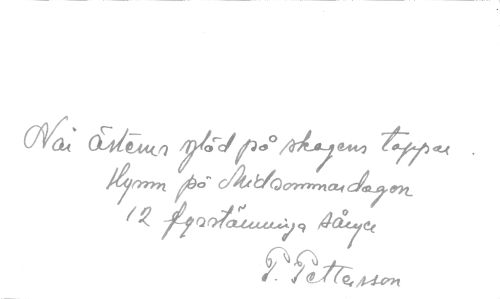 När österns glöd på skogens toppar.
Hymn på Midsommardagen
12 fyrstämmiga sånger
P. Pettersson